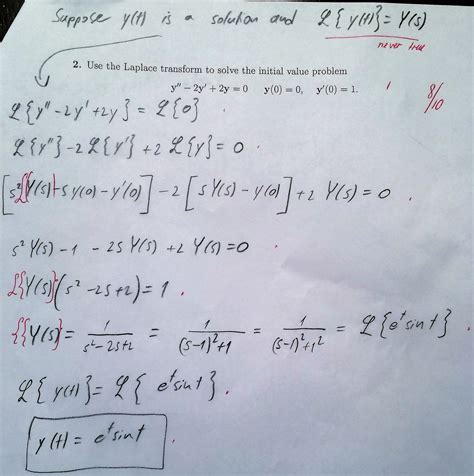 Suppose y(t) is a solution and ℒ{y(t)} = Y(s)
never true
2. Use the Laplace transform to solve the initial value problem
y'' − 2y' + 2y = 0 y(0) = 0, y'(0) = 1.
8/10
ℒ{y'' - 2y' + 2y} = ℒ{0}
ℒ{y''} - 2ℒ{y'} + 2ℒ{y} = 0
[s²ℒ{Y(s)} - sy(0) - y'(0)] - 2[sY(s) - y(0)] + 2Y(s) = 0
s²Y(s) - 1 - 2sY(s) + 2Y(s) = 0
ℒ{Y(s)}(s² - 2s + 2) = 1
ℒ{Y(s)} = 1/(s² - 2s + 2) = 1/((s-1)² + 1) = 1/((s-1)² + 1²) = ℒ{eᵗ sin t}
ℒ{y(t)} = ℒ{eᵗ sin t}
y(t) = eᵗ sin t